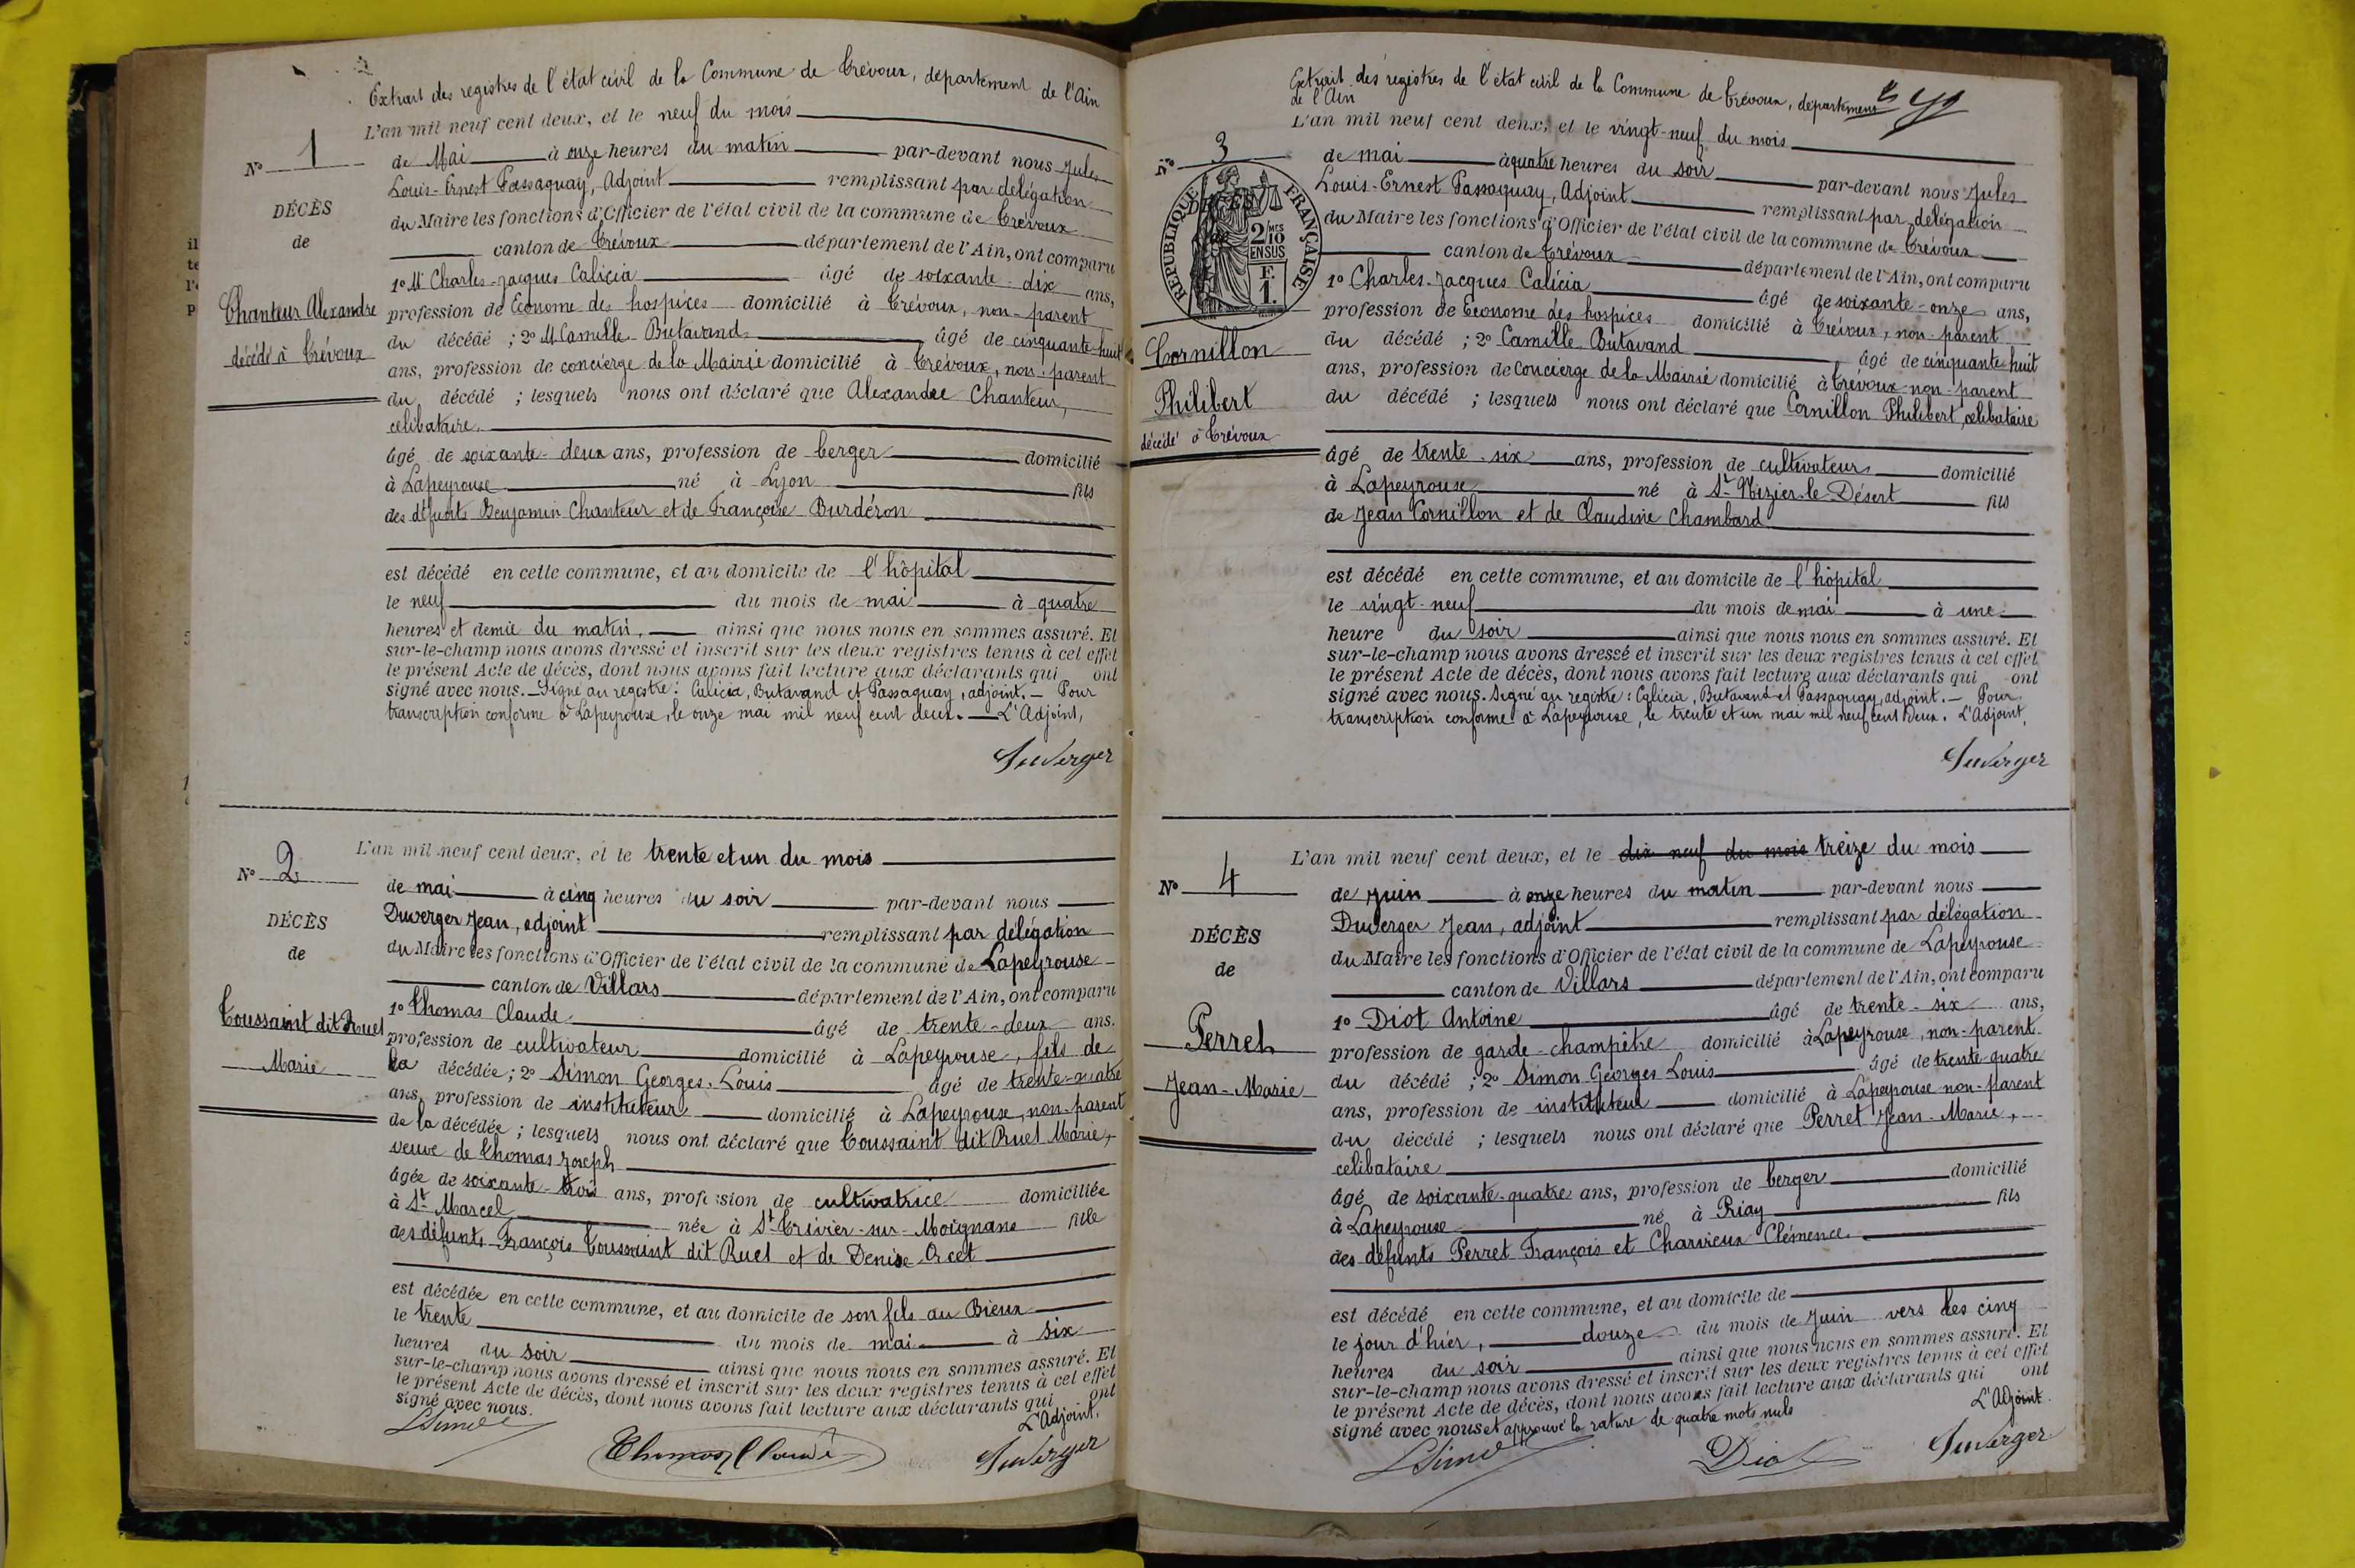 Extrait des registres de l'état civil de la Commune de Trévoux, département de l'Ain
L'an mil neuf cent deux, et le neuf du mois
N° 1
de Mai à onze heures du matin par-devant nous Jules
Louis-Ernest Passaquay, Adjoint remplissant par délégation
DÉCÈS
du Maire les fonctions d'Officier de l'état civil de la commune de Trévoux
de
canton de Trévoux département de l'Ain, ont comparu
1° M Charles-Jacques Calicia âgé de soixante-dix ans,
Chanteur Alexandre
profession de Econome des hospices domicilié à Trévoux, non-parent
décédé à Trévoux
du décédé ; 2° M Camille Butavand âgé de cinquante-huit
ans, profession de concierge de la Mairie domicilié à Trévoux, non-parent
du décédé ; lesquels nous ont déclaré que Alexandre Chanteur,
célibataire.
âgé de soixante-deux ans, profession de berger domicilié
à Lapeyrouse né à Lyon fils
des défunts Benjamin Chanteur et de Françoise Burdéron
est décédé en cette commune, et au domicile de l'hôpital
le neuf du mois de mai à quatre
heures et demie du matin, ainsi que nous nous en sommes assuré. Et
sur-le-champ nous avons dressé et inscrit sur les deux registres tenus à cet effet
le présent Acte de décès, dont nous avons fait lecture aux déclarants qui ont
signé avec nous. — Signé au registre : Calicia, Butavand et Passaquay, adjoint. — Pour
transcription conforme à Lapeyrouse, le onze mai mil neuf cent deux. — L'Adjoint,
Duverger
L'an mil neuf cent deux, et le trente et un du mois
N° 2
de mai à cinq heures du soir par-devant nous
DÉCÈS
Duverger Jean, adjoint remplissant par délégation
de
du Maire les fonctions d'Officier de l'état civil de la commune de Lapeyrouse
canton de Villars département de l'Ain, ont comparu
Toussaint dit Ruet
Marie
1° Thomas Claude âgé de trente-deux ans.
profession de cultivateur domicilié à Lapeyrouse, fils de
la décédée ; 2° Simon Georges-Louis âgé de trente-quatre
ans, profession de instituteur domicilié à Lapeyrouse, non-parent
de la décédée ; lesquels nous ont déclaré que Toussaint dit Ruet Marie,
veuve de Thomas Joseph
âgée de soixante-trois ans, profession de cultivatrice domiciliée
à St Marcel née à St Trivier-sur-Moignans fille
des défunts François Toussaint dit Ruet et de Denise Orcet
est décédée en cette commune, et au domicile de son fils au Bieux
le trente du mois de mai à six
heures du soir ainsi que nous nous en sommes assuré. Et
sur-le-champ nous avons dressé et inscrit sur les deux registres tenus à cet effet
le présent Acte de décès, dont nous avons fait lecture aux déclarants qui ont
signé avec nous.
L'Adjoint,
LSimon Thomas Claude Duverger
Extrait des registres de l'état civil de la Commune de Trévoux, département
de l'Ain
L'an mil neuf cent deux, et le vingt-neuf du mois
N° 3
DÉCÈS
de
RÉPUBLIQUE FRANÇAISE
2 MES
10
EN SUS
F.
1.
de mai à quatre heures du soir par-devant nous Jules
Louis-Ernest Passaquay, Adjoint remplissant par délégation
du Maire les fonctions d'Officier de l'état civil de la commune de Trévoux
canton de Trévoux département de l'Ain, ont comparu
1° Charles-Jacques Calicia âgé de soixante-onze ans,
profession de Econome des hospices domicilié à Trévoux, non-parent
Cornillon
Philibert
décédé à Trévoux
du décédé ; 2° Camille Butavand, âgé de cinquante-huit
ans, profession de concierge de la Mairie domicilié à Trévoux non-parent
du décédé ; lesquels nous ont déclaré que Cornillon Philibert, célibataire
âgé de trente-six ans, profession de cultivateur domicilié
à Lapeyrouse né à St Nizier-le-Désert fils
de Jean Cornillon et de Claudine Chambard
est décédé en cette commune, et au domicile de l'hôpital
le vingt-neuf du mois de mai à une
heure du soir ainsi que nous nous en sommes assuré. Et
sur-le-champ nous avons dressé et inscrit sur les deux registres tenus à cet effet
le présent Acte de décès, dont nous avons fait lecture aux déclarants qui ont
signé avec nous. Signé au registre : Calicia, Butavand et Passaquay, adjoint. — Pour
transcription conforme à Lapeyrouse, le trente et un mai mil neuf cent deux. L'Adjoint,
Duverger
L'an mil neuf cent deux, et le dix neuf du mois treize du mois
N° 4
de Juin à onze heures du matin par-devant nous
Duverger Jean, adjoint remplissant par délégation
DÉCÈS
du Maire les fonctions d'Officier de l'état civil de la commune de Lapeyrouse
de
canton de Villars département de l'Ain, ont comparu
1° Diot Antoine âgé de trente-six ans,
Perret
Jean-Marie
profession de garde-champêtre domicilié à Lapeyrouse, non-parent
du décédé ; 2° Simon Georges Louis âgé de trente-quatre
ans, profession de instituteur domicilié à Lapeyrouse non-parent
du décédé ; lesquels nous ont déclaré que Perret Jean-Marie,
célibataire
âgé de soixante-quatre ans, profession de berger domicilié
à Lapeyrouse né à Priay fils
des défunts Perret François et Charvieux Clémence.
est décédé en cette commune, et au domicile de
le jour d'hier, douze du mois de Juin vers les cinq
heures du soir ainsi que nous nous en sommes assuré. Et
sur-le-champ nous avons dressé et inscrit sur les deux registres tenus à cet effet
le présent Acte de décès, dont nous avons fait lecture aux déclarants qui ont
signé avec nous et approuvé la rature de quatre mots nuls
L'Adjoint.
LSimon Diot Duverger